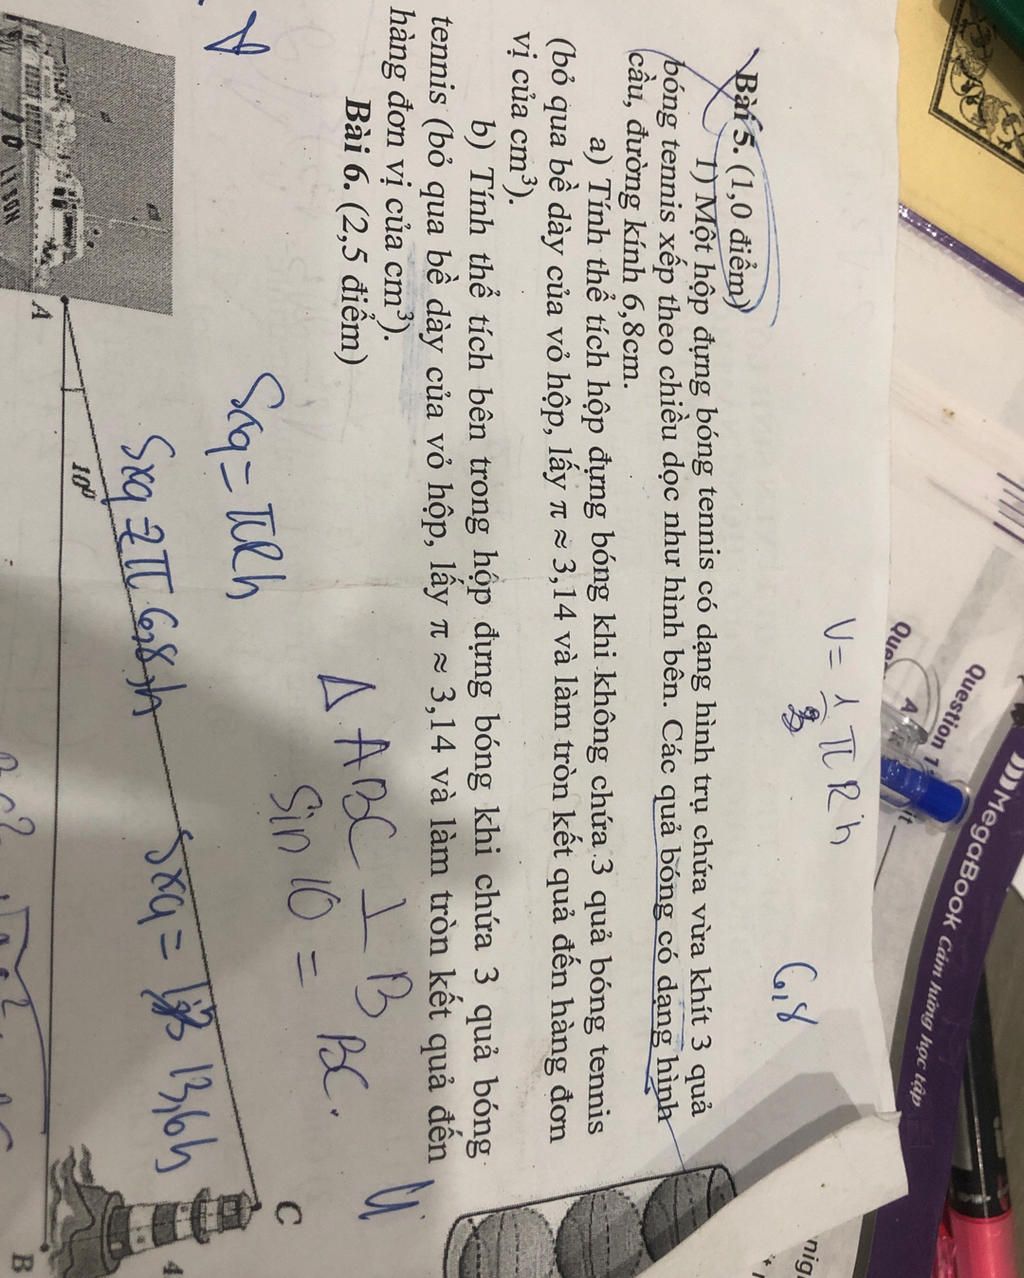 Bài 5. (1,0 điểm)
1) Một hộp đựng bóng tennis có dạng hình trụ chứa vừa khít 3 quả
bóng tennis xếp theo chiều dọc như hình bên. Các quả bóng có dạng hình
cầu, đường kính 6,8cm.
a) Tính thể tích hộp đựng bóng khi không chứa 3 quả bóng tennis
(bỏ qua bề dày của vỏ hộp, lấy π ≈ 3,14 và làm tròn kết quả đến hàng đơn
vị của cm³).
b) Tính thể tích bên trong hộp đựng bóng khi chứa 3 quả bóng
tennis (bỏ qua bề dày của vỏ hộp, lấy π ≈ 3,14 và làm tròn kết quả đến
hàng đơn vị của cm³).
Bài 6. (2,5 điểm)
V = π R h
6,8
Δ ABC ⊥ B
sin 10 = BC
Sxq = πRh
Sxq = π 6,8 h
Sxq = 13,6h
A
10°
C
B
4
Question
Question
A
MegaBook Cảm hứng học tập